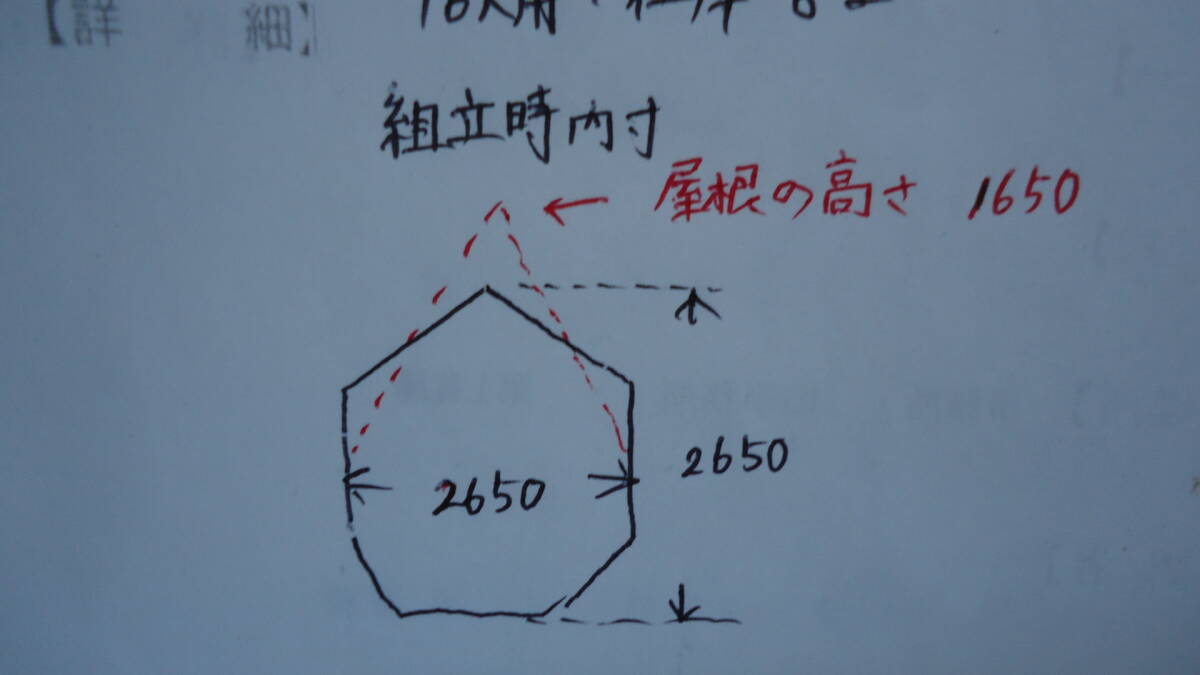 【詳 細】
組立時内寸
屋根の高さ 1650
2650
2650